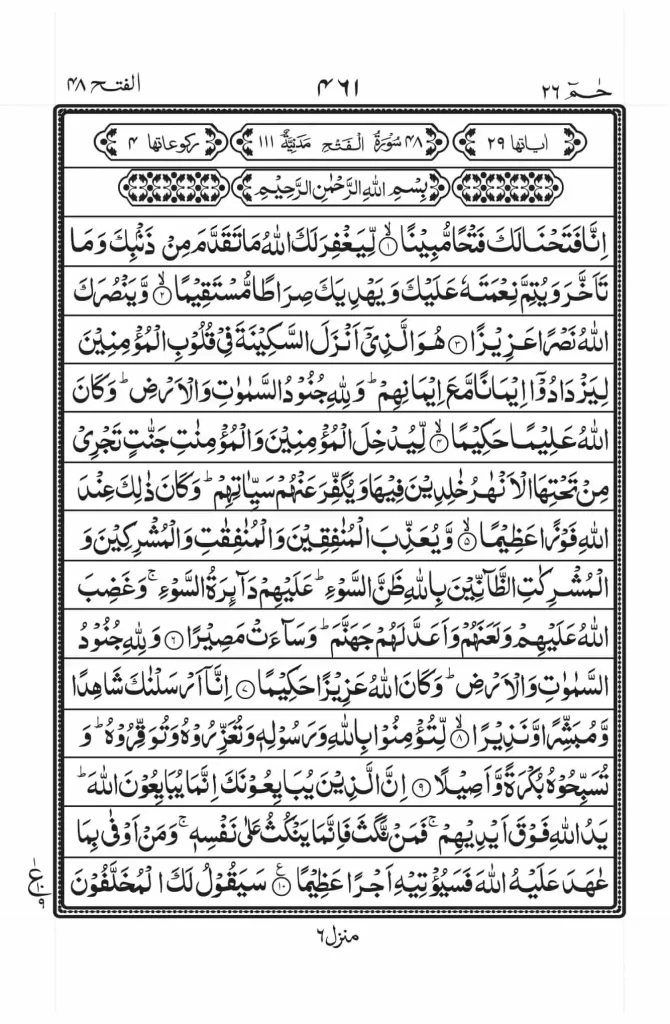 حٰمٓ ٢٦
٤٦١
الفتح ٤٨
اٰیاتها ٢٩
٤٨ سُوْرَةُ الْفَتْحِ مَدَنِيَّةٌ ١١١
ركوعاتها ٤
بِسْمِ اللهِ الرَّحْمٰنِ الرَّحِيْمِ
اِنَّا فَتَحْنَا لَكَ فَتْحًا مُّبِيْنًا ۙ﴿١﴾ لِّيَغْفِرَ لَكَ اللهُ مَا تَقَدَّمَ مِنْ ذَنْۢبِكَ وَمَا
تَاَخَّرَ وَيُتِمَّ نِعْمَتَهٗ عَلَيْكَ وَيَهْدِيَكَ صِرَاطًا مُّسْتَقِيْمًا ۙ﴿٢﴾ وَّيَنْصُرَكَ
اللهُ نَصْرًا عَزِيْزًا ﴿٣﴾ هُوَ الَّذِيْۤ اَنْزَلَ السَّكِيْنَةَ فِيْ قُلُوْبِ الْمُؤْمِنِيْنَ
لِيَزْدَادُوْۤا اِيْمَانًا مَّعَ اِيْمَانِهِمْ ؕ وَلِلّٰهِ جُنُوْدُ السَّمٰوٰتِ وَالْاَرْضِ ؕ وَكَانَ
اللهُ عَلِيْمًا حَكِيْمًا ۙ﴿٤﴾ لِّيُدْخِلَ الْمُؤْمِنِيْنَ وَالْمُؤْمِنٰتِ جَنّٰتٍ تَجْرِيْ
مِنْ تَحْتِهَا الْاَنْهٰرُ خٰلِدِيْنَ فِيْهَا وَيُكَفِّرَ عَنْهُمْ سَيِّاٰتِهِمْ ؕ وَكَانَ ذٰلِكَ عِنْدَ
اللهِ فَوْزًا عَظِيْمًا ۙ﴿٥﴾ وَّيُعَذِّبَ الْمُنٰفِقِيْنَ وَالْمُنٰفِقٰتِ وَالْمُشْرِكِيْنَ وَ
الْمُشْرِكٰتِ الظَّآنِّيْنَ بِاللهِ ظَنَّ السَّوْءِ ؕ عَلَيْهِمْ دَآىِٕرَةُ السَّوْءِ ۚ وَغَضِبَ
اللهُ عَلَيْهِمْ وَلَعَنَهُمْ وَاَعَدَّ لَهُمْ جَهَنَّمَ ؕ وَسَآءَتْ مَصِيْرًا ﴿٦﴾ وَلِلّٰهِ جُنُوْدُ
السَّمٰوٰتِ وَالْاَرْضِ ؕ وَكَانَ اللهُ عَزِيْزًا حَكِيْمًا ﴿٧﴾ اِنَّاۤ اَرْسَلْنٰكَ شَاهِدًا
وَّمُبَشِّرًا وَّنَذِيْرًا ۙ﴿٨﴾ لِّتُؤْمِنُوْا بِاللهِ وَرَسُوْلِهٖ وَتُعَزِّرُوْهُ وَتُوَقِّرُوْهُ ؕ وَ
تُسَبِّحُوْهُ بُكْرَةً وَّاَصِيْلًا ﴿٩﴾ اِنَّ الَّذِيْنَ يُبَايِعُوْنَكَ اِنَّمَا يُبَايِعُوْنَ اللهَ ؕ
يَدُ اللهِ فَوْقَ اَيْدِيْهِمْ ۚ فَمَنْ نَّكَثَ فَاِنَّمَا يَنْكُثُ عَلٰى نَفْسِهٖ ۚ وَمَنْ اَوْفٰى بِمَا
عٰهَدَ عَلَيْهُ اللهَ فَسَيُؤْتِيْهِ اَجْرًا عَظِيْمًا ﴿١٠﴾ؑ سَيَقُوْلُ لَكَ الْمُخَلَّفُوْنَ
ع
١٠
٩
منزل ٦